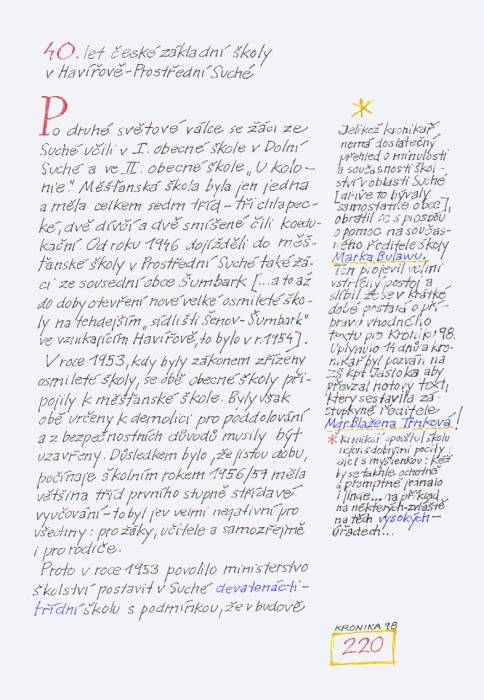 40. let české základní školy
v Havířově-Prostřední Suché
Po druhé světové válce se žáci ze
Suché učili v I. obecné škole v Dolní
Suché a ve II. obecné škole „U kolo-
nie." Měšťanská škola byla jen jedna
a měla celkem sedm tříd-tři chlapec-
ké, dvě dívčí a dvě smíšené čili koedu-
kační. Od roku 1946 dojížděli do měš-
ťanské školy v Prostřední Suché také žá-
ci ze sousední obce Šumbark [...a to až
do doby otevření nové velké osmileté ško-
ly na tehdejším „sídlišti Šenov-Šumbark"
ve vznikajícím Havířově, to bylo v r. 1954].
V roce 1953, kdy byly zákonem zřízeny
osmileté školy, se obě obecné školy při-
pojily k měšťanské škole. Byly však
obě určeny k demolici pro poddolování
a z bezpečnostních důvodů musily být
uzavřeny. Důsledkem bylo, že jistou dobu,
počínaje školním rokem 1956/57 měla
většina tříd prvního stupně střídavé
vyučování-to byl jev velmi negativní pro
všechny: pro žáky, učitele a samozřejmě
i pro rodiče.
Proto v roce 1953 povolilo ministerstvo
školství postavit v Suché devatenácti-
třídní školu s podmínkou, že v budově
Jelikož kronikář
nemá dostatečný
přehled o minulosti
a současnosti škol-
ství v oblasti Suché
[dříve to bývaly
samostatné obce],
obrátil se s prosbou
o pomoc na součas-
ného ředitele školy
Marka Bulawu.
Ten projevil velmi
vstřícný postoj a
slíbil, že se v krátké
době postará o pří-
pravu vhodného
textu pro Kroniku 98.
Uplynulo 14 dnů a kro-
nikář byl pozván na
ZŠ kpt. Jasioka aby
převzal hotový text,
který sestavila zá-
stupkyně ředitele
Mgr. Blažena Trnková!
Kronikář opouštěl školu
nejen s dobrými pocity
ale i s myšlenkou: kéž
by se takhle ochotně
a promptně jednalo
i jinde... na příklad
na některých-zvláště
na těch vysokých-
úřadech...
KRONIKA 98
220